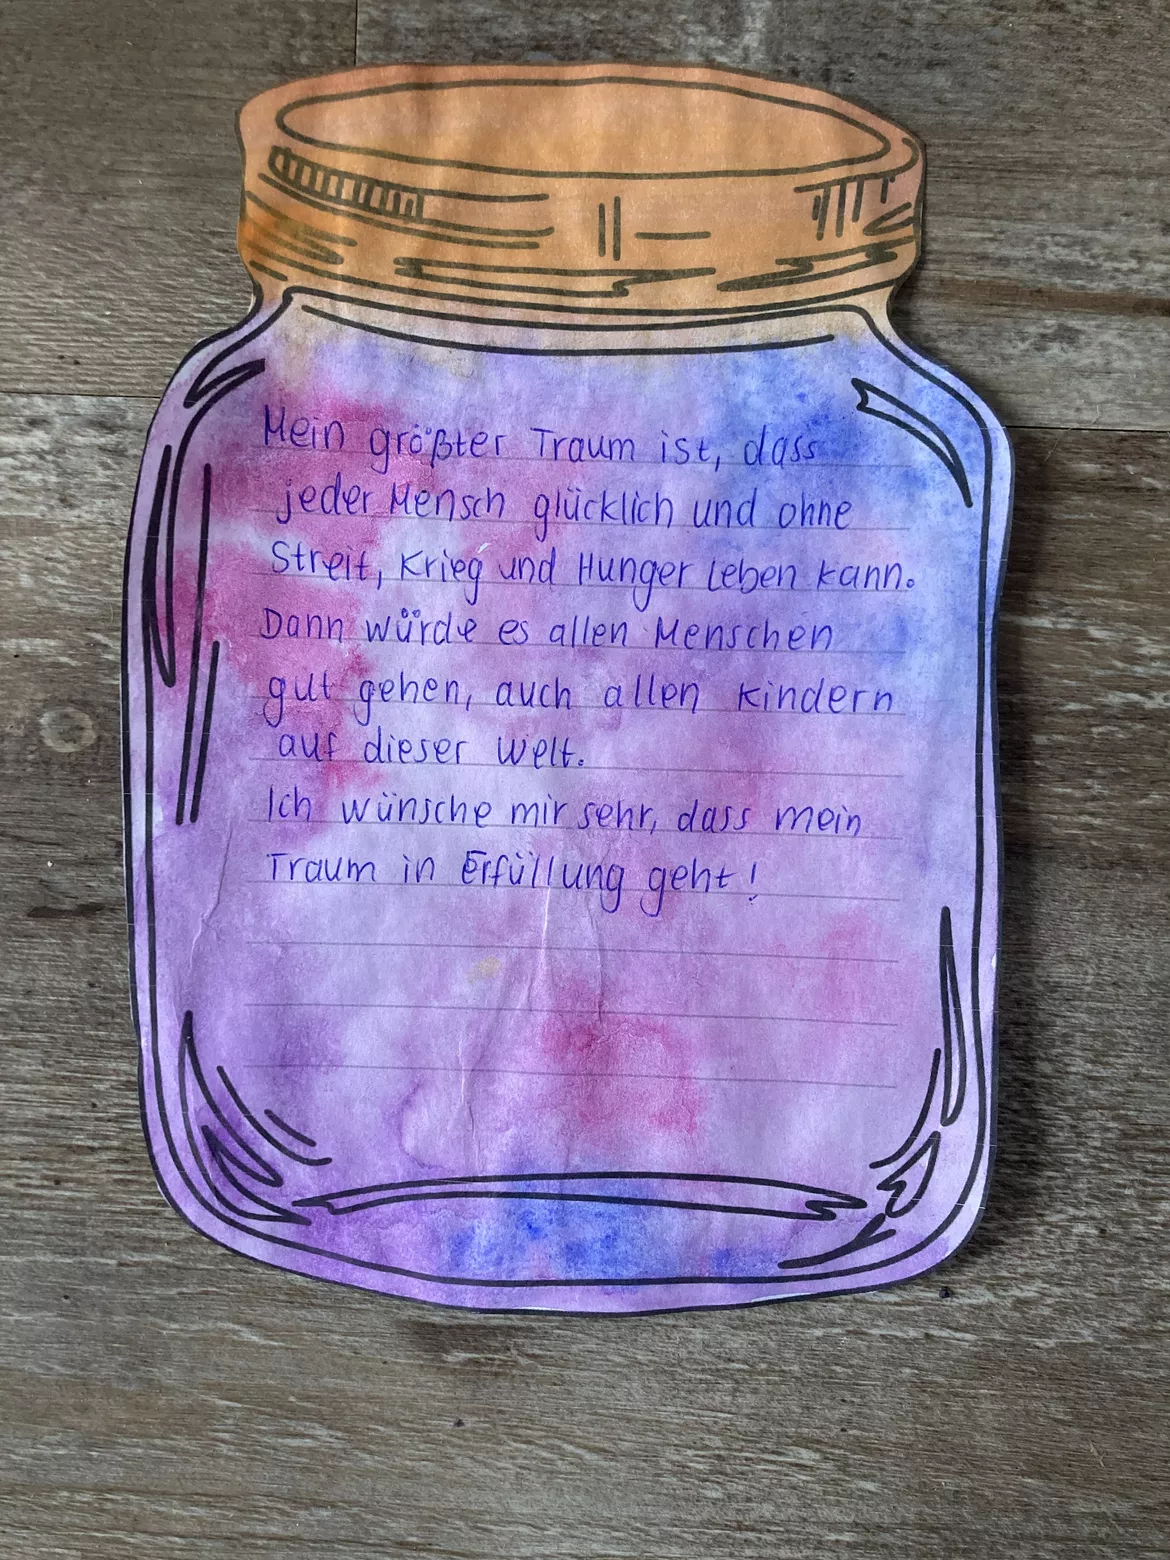 Mein größter Traum ist, dass
jeder Mensch glücklich und ohne
Streit, Krieg und Hunger Leben kann.
Dann würde es allen Menschen
gut gehen, auch allen Kindern
auf dieser Welt.
Ich wünsche mir sehr, dass mein
Traum in Erfüllung geht!